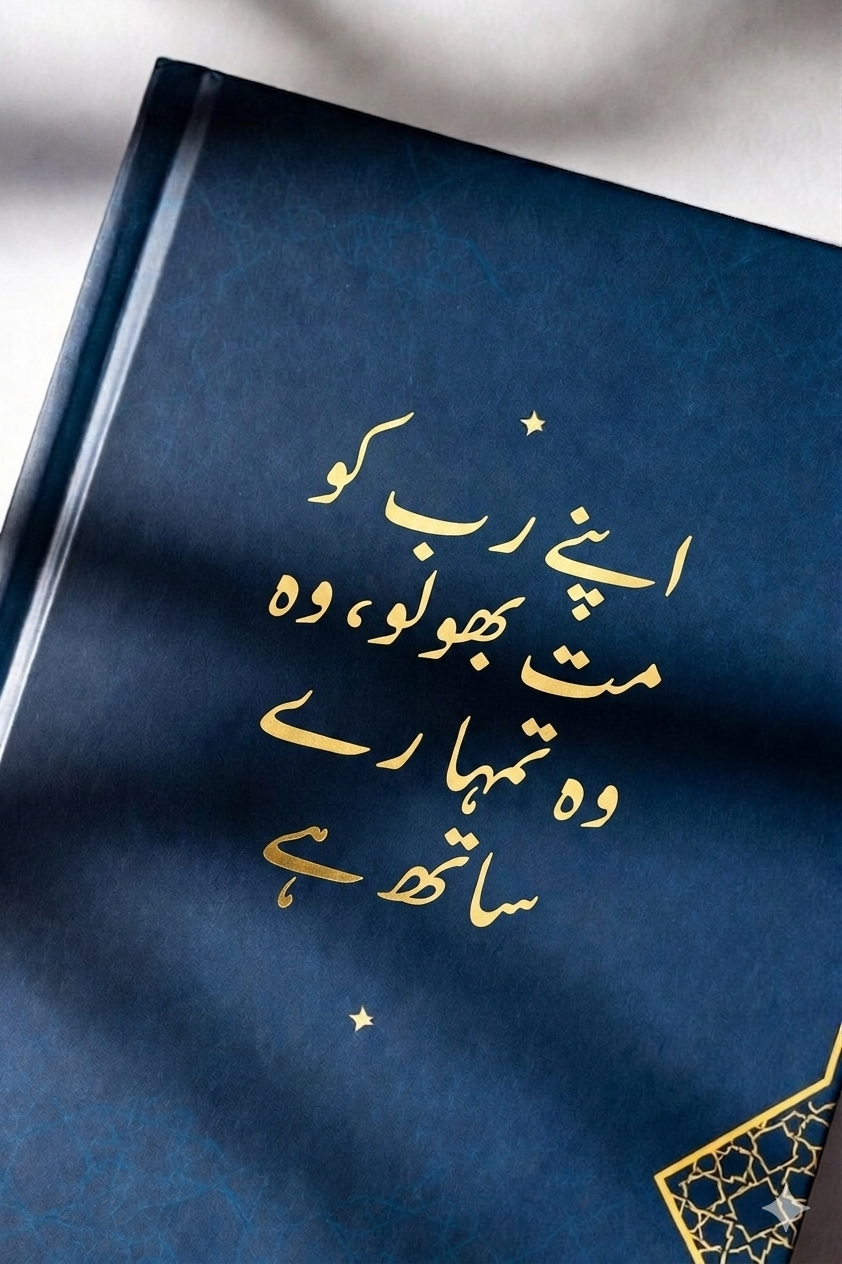 اپنے رب کو
مت بھولو، وہ
وہ تمہارے
ساتھ ہے